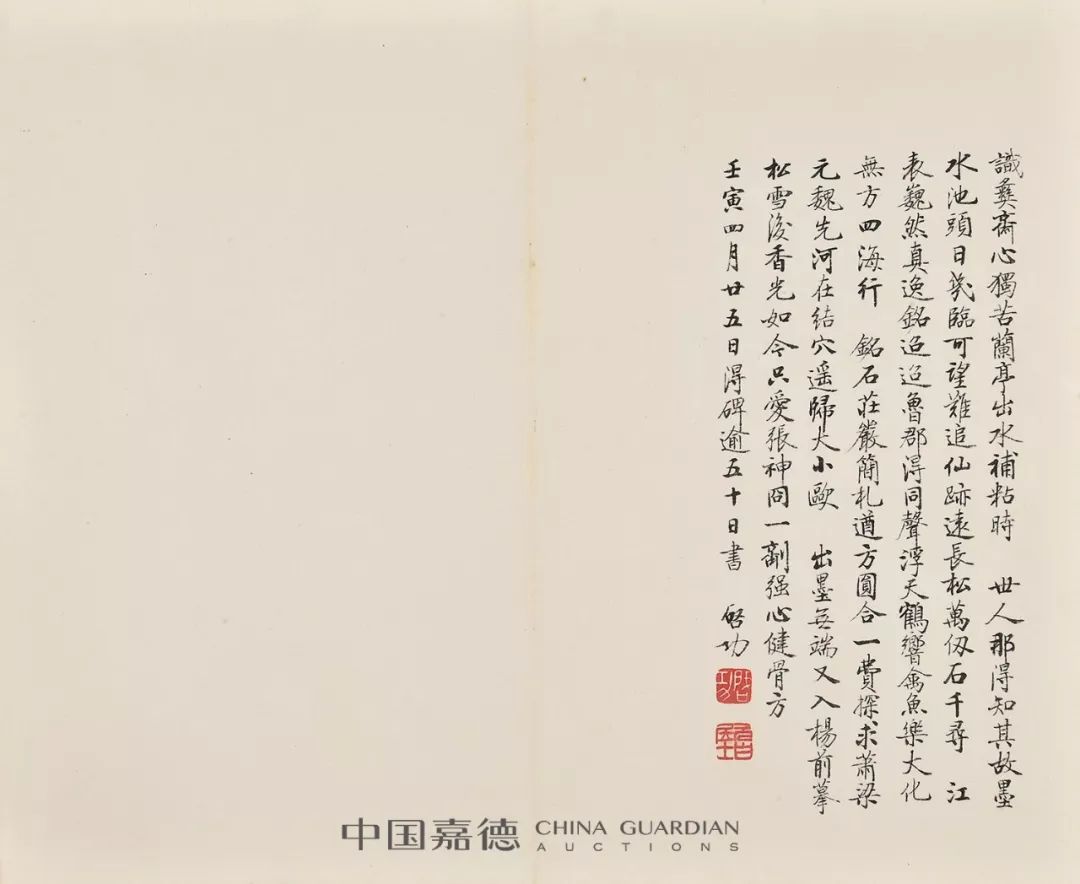 識彝齋心獨苦蘭亭出水補粘時 世人那得知其故墨
水池頭日幾臨可望難追仙跡遠長松萬仞石千尋 江
表巍然真逸銘迢迢魯郡得同聲浮天鶴響禽魚樂大化
無方四海行 銘石莊嚴簡札遒方圓合一費探求蕭梁
元魏先河在結穴遥歸大小歐 出墨無端又入楊前摹
松雪後香光如今只愛張神冏一劑强心健骨方
壬寅四月廿五日得碑逾五十日書 啓功
啓功
中国嘉德 CHINA GUARDIAN
AUCTIONS